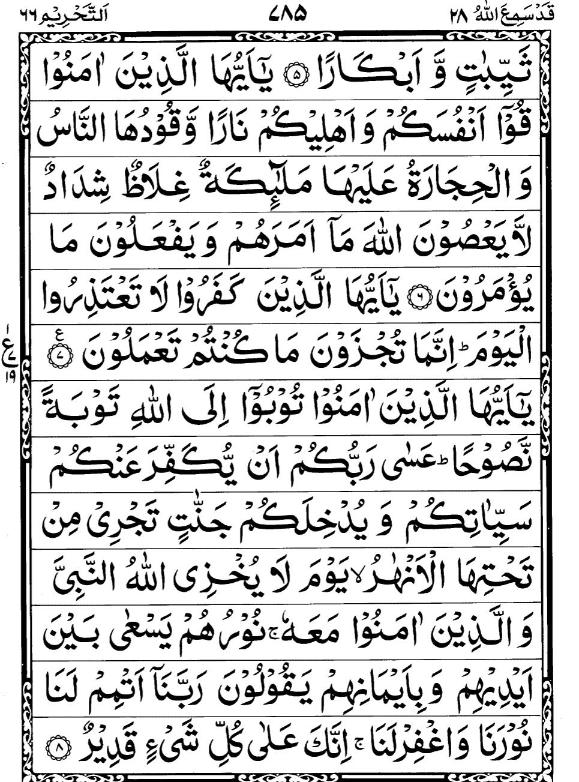 قَدْ سَمِعَ اللهُ ٢٨
٧٨٥
اَلتَّحْرِيْم ٦٦
ثَيِّبٰتٍ وَّ اَبْكَارًا ۝٥ يٰۤاَيُّهَا الَّذِيْنَ اٰمَنُوْا
قُوْۤا اَنْفُسَكُمْ وَ اَهْلِيْكُمْ نَارًا وَّقُوْدُهَا النَّاسُ
وَ الْحِجَارَةُ عَلَيْهَا مَلٰٓئِكَةٌ غِلَاظٌ شِدَادٌ
لَّا يَعْصُوْنَ اللّٰهَ مَاۤ اَمَرَهُمْ وَ يَفْعَلُوْنَ مَا
يُؤْمَرُوْنَ ۝٦ يٰۤاَيُّهَا الَّذِيْنَ كَفَرُوْا لَا تَعْتَذِرُوا
الْيَوْمَ ؕ اِنَّمَا تُجْزَوْنَ مَا كُنْتُمْ تَعْمَلُوْنَ ۝٧ ع
١ ع ٧ ١٩
يٰۤاَيُّهَا الَّذِيْنَ اٰمَنُوْا تُوْبُوْۤا اِلَى اللّٰهِ تَوْبَةً
نَّصُوْحًا ؕ عَسٰى رَبُّكُمْ اَنْ يُّكَفِّرَ عَنْكُمْ
سَيِّاٰتِكُمْ وَ يُدْخِلَكُمْ جَنّٰتٍ تَجْرِيْ مِنْ
تَحْتِهَا الْاَنْهٰرُ ۙ يَوْمَ لَا يُخْزِى اللّٰهُ النَّبِيَّ
وَ الَّذِيْنَ اٰمَنُوْا مَعَهٗ ۚ نُوْرُهُمْ يَسْعٰى بَيْنَ
اَيْدِيْهِمْ وَ بِاَيْمَانِهِمْ يَقُوْلُوْنَ رَبَّنَاۤ اَتْمِمْ لَنَا
نُوْرَنَا وَ اغْفِرْ لَنَا ۚ اِنَّكَ عَلٰى كُلِّ شَيْءٍ قَدِيْرٌ ۝٨